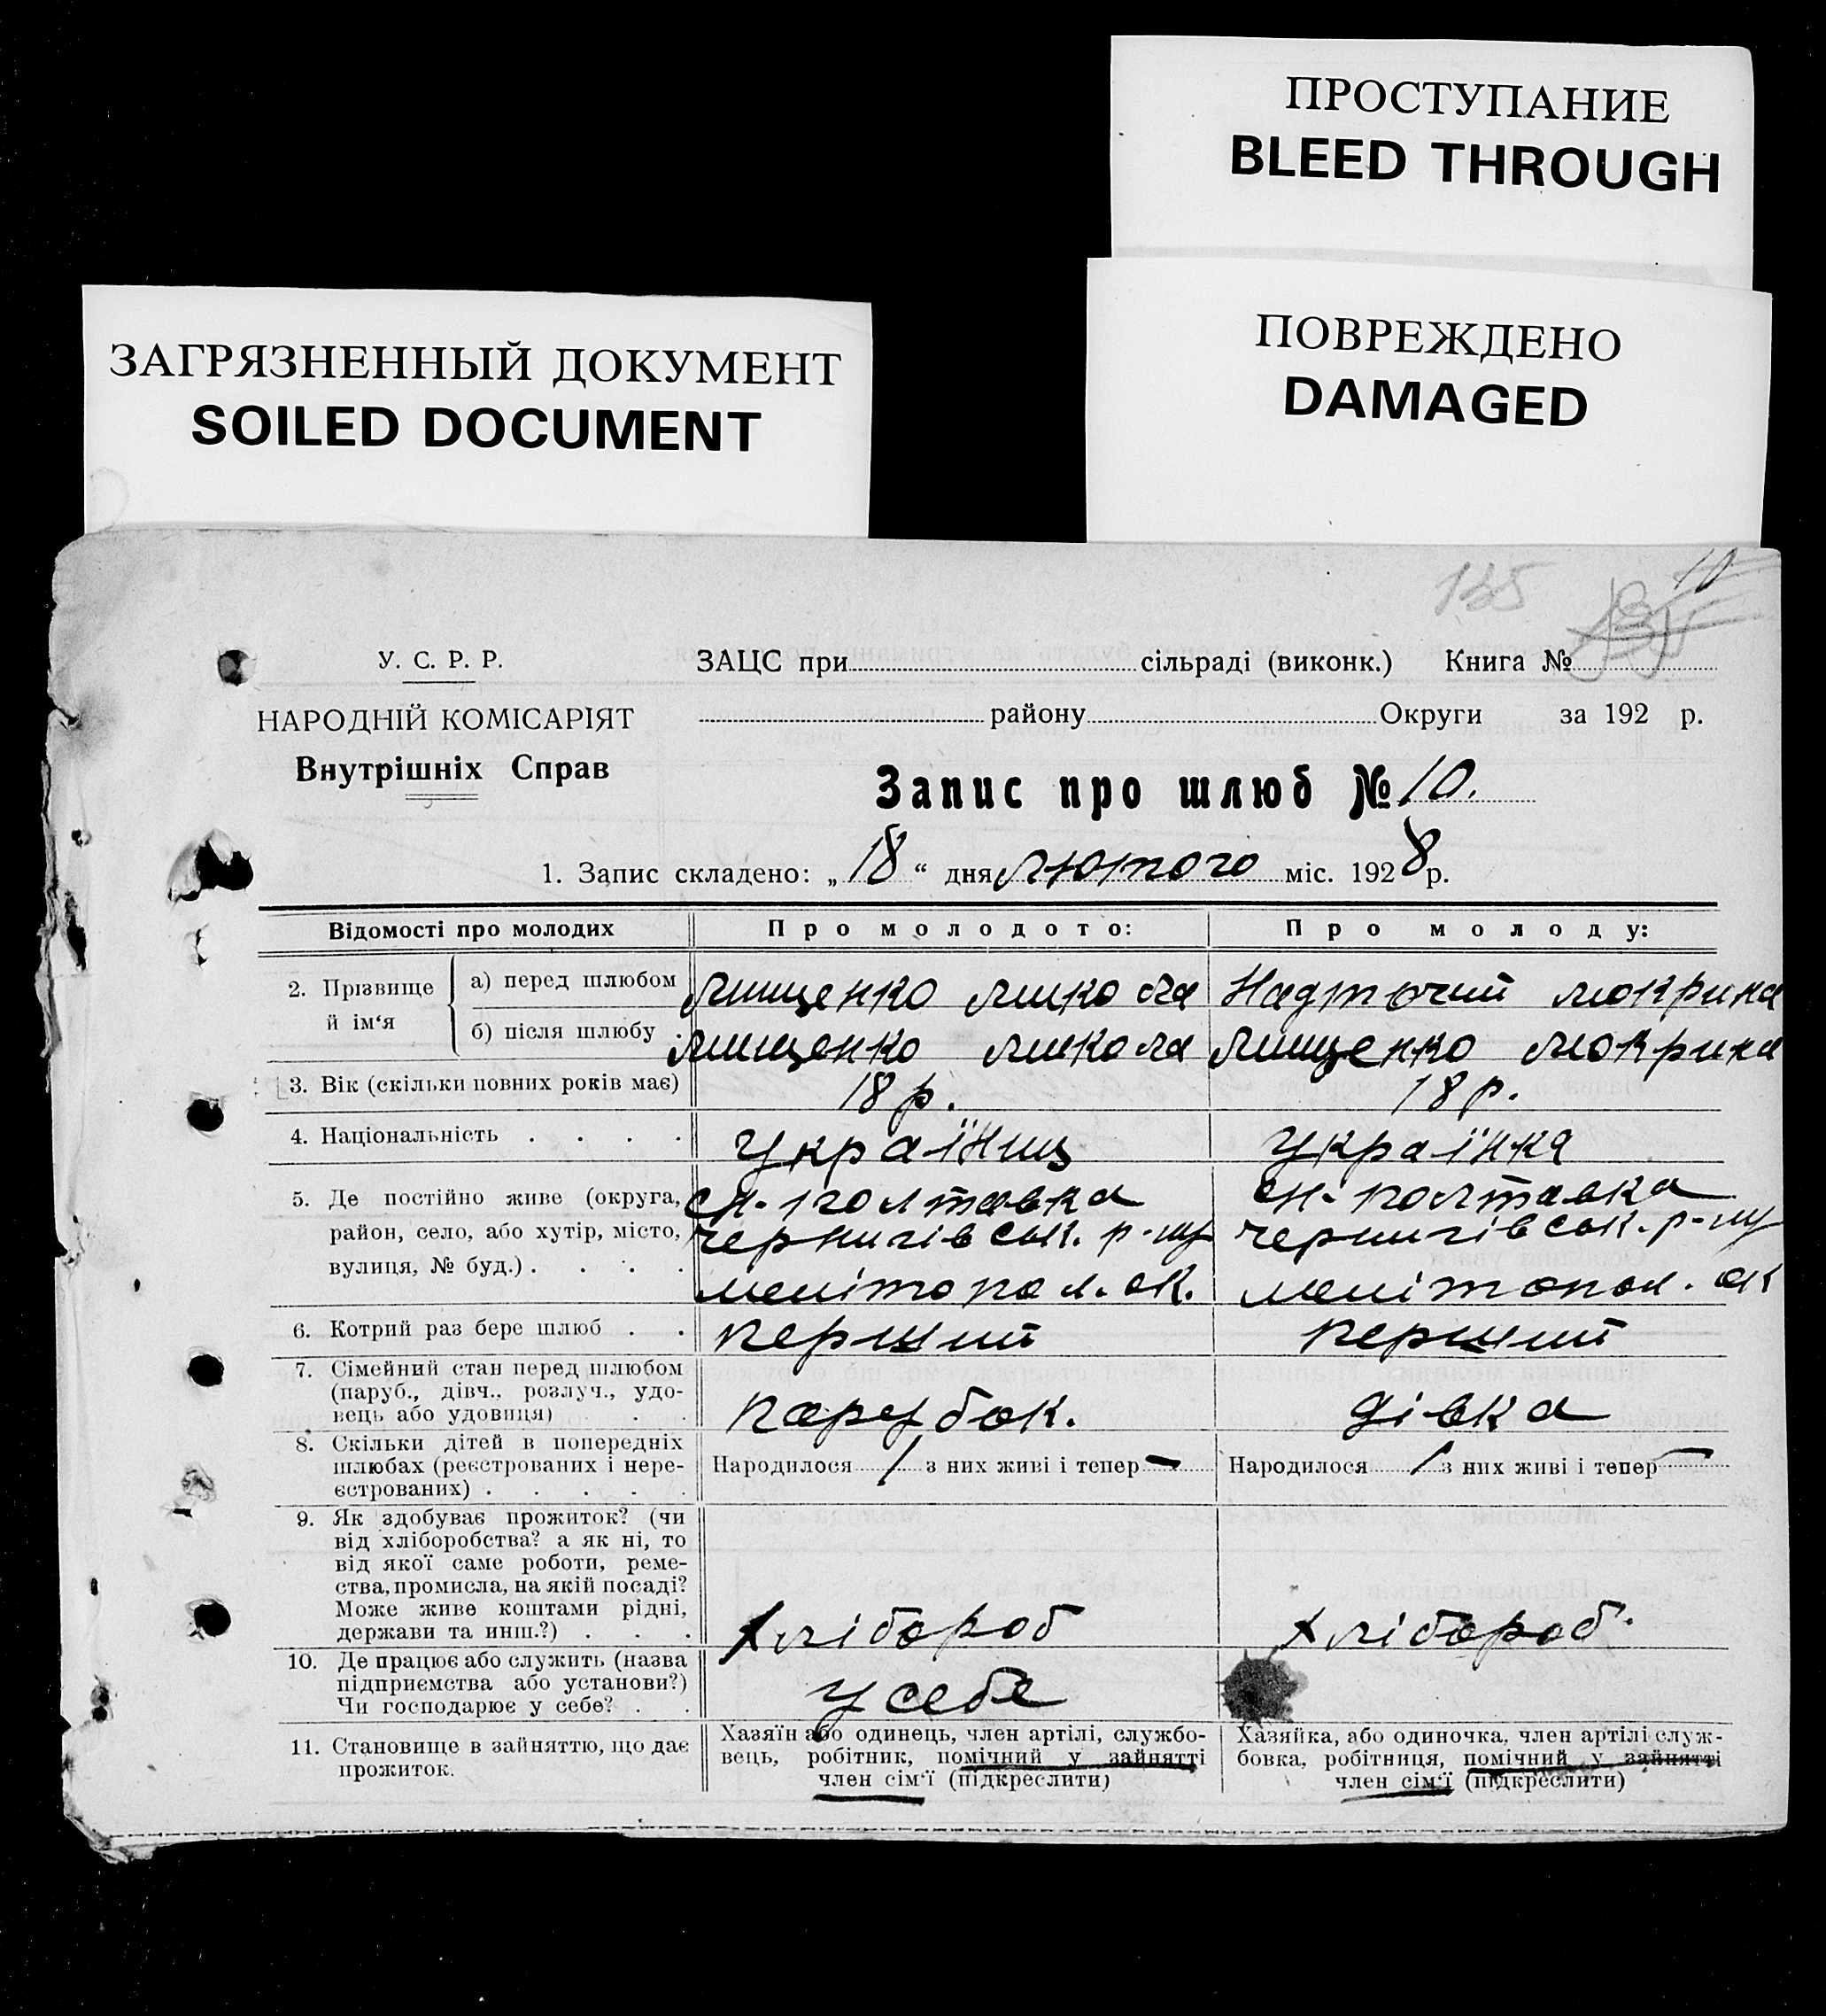 ПРОСТУПАНИЕ
BLEED THROUGH
ПОВРЕЖДЕНО
DAMAGED
ЗАГРЯЗНЕННЫЙ ДОКУМЕНТ
SOILED DOCUMENT
135
10
У. С. Р. Р.
НАРОДНІЙ КОМІСАРІЯТ
Внутрішніх Справ
ЗАЦС при сільраді (виконк.) Книга №
району Округи за 192 р.
Запис про шлюб № 10.
1. Запис складено: „18“ дня лютого міс. 1928 р.
Відомості про молодих Про молодото: Про молоду:
2. Прізвище й ім‘я
а) перед шлюбом Мищенко Микола Надточий Мокрина
б) після шлюбу Мищенко Микола Мищенко Мокрина
3. Вік (скільки повних років має) 18 р. 18 р.
4. Національність . . . . Україниц Українка
5. Де постійно живе (округа, район, село, або хутір, місто, вулиця, № буд.) . . . .
сн. Полтавка
чернигівськ. р-ну
мелітопол. ок.
сн. Полтавка
чернигівськ. р-ну
мелітопол. ок
6. Котрий раз бере шлюб . . перший перший
7. Сімейний стан перед шлюбом
(паруб., дівч., розлуч., удо-
вець або удовиця) . . парубок. дівка
8. Скільки дітей в попередніх
шлюбах (реєстрованих і нере-
єстрованих) . . . . .
Народилося / з них живі і тепер —
Народилося / з них живі і тепер —
9. Як здобуває прожиток? (чи
від хліборобства? а як ні, то
від якої саме роботи, реме-
ства, промисла, на якій посаді?
Може живе коштами рідні,
держави та инш.?) . . . Хлібороб Хлібороб.
10. Де працює або служить (назва
підприємства або установи?)
Чи господарює у себе? . . У себе
11. Становище в зайняттю, що дає
прожиток.
Хазяїн або одинець, член артілі, службо-
вець, робітник, помічний у зайнятті
член сім‘ї (підкреслити)
Хазяйка, або одиночка, член артілі служ-
бовка, робітниця, помічний у зайнятті
член сім‘ї (підкреслити)